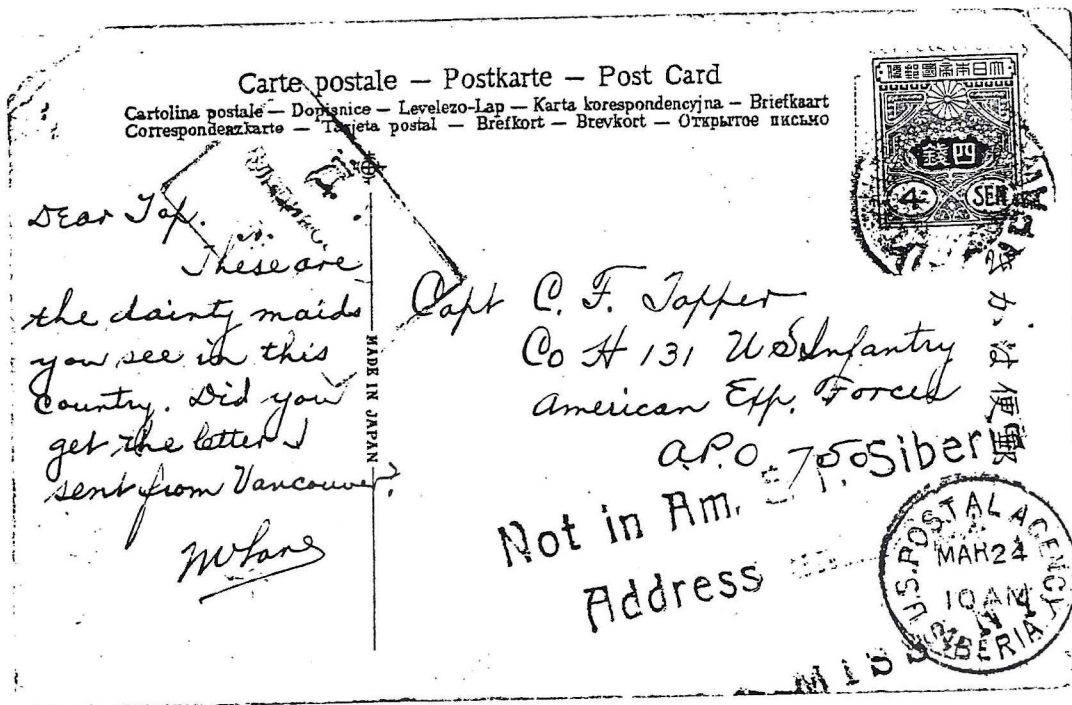 Carte postale — Postkarte — Post Card
Cartolina postale — Dopisnice — Levelezo-Lap — Karta korespondencyjna — Briefkaart
Correspondenzkarte — Tarjeta postal — Brefkort — Brevkort — Открытое письмо
大日本帝國郵便
四錢
4 SEN
郵便はがき
Dear Tap.
These are
the dainty maids
you see in this
country. Did you
get the letter I
sent from Vancouver?
MADE IN JAPAN
Capt C. F. Tapper
Co H 131 U S Infantry
American Exp. Forces
A.P.O. 750
Not in Am. Siberia
Address
U.S. POSTAL AGENCY
MAR 24
10 AM
SIBERIA